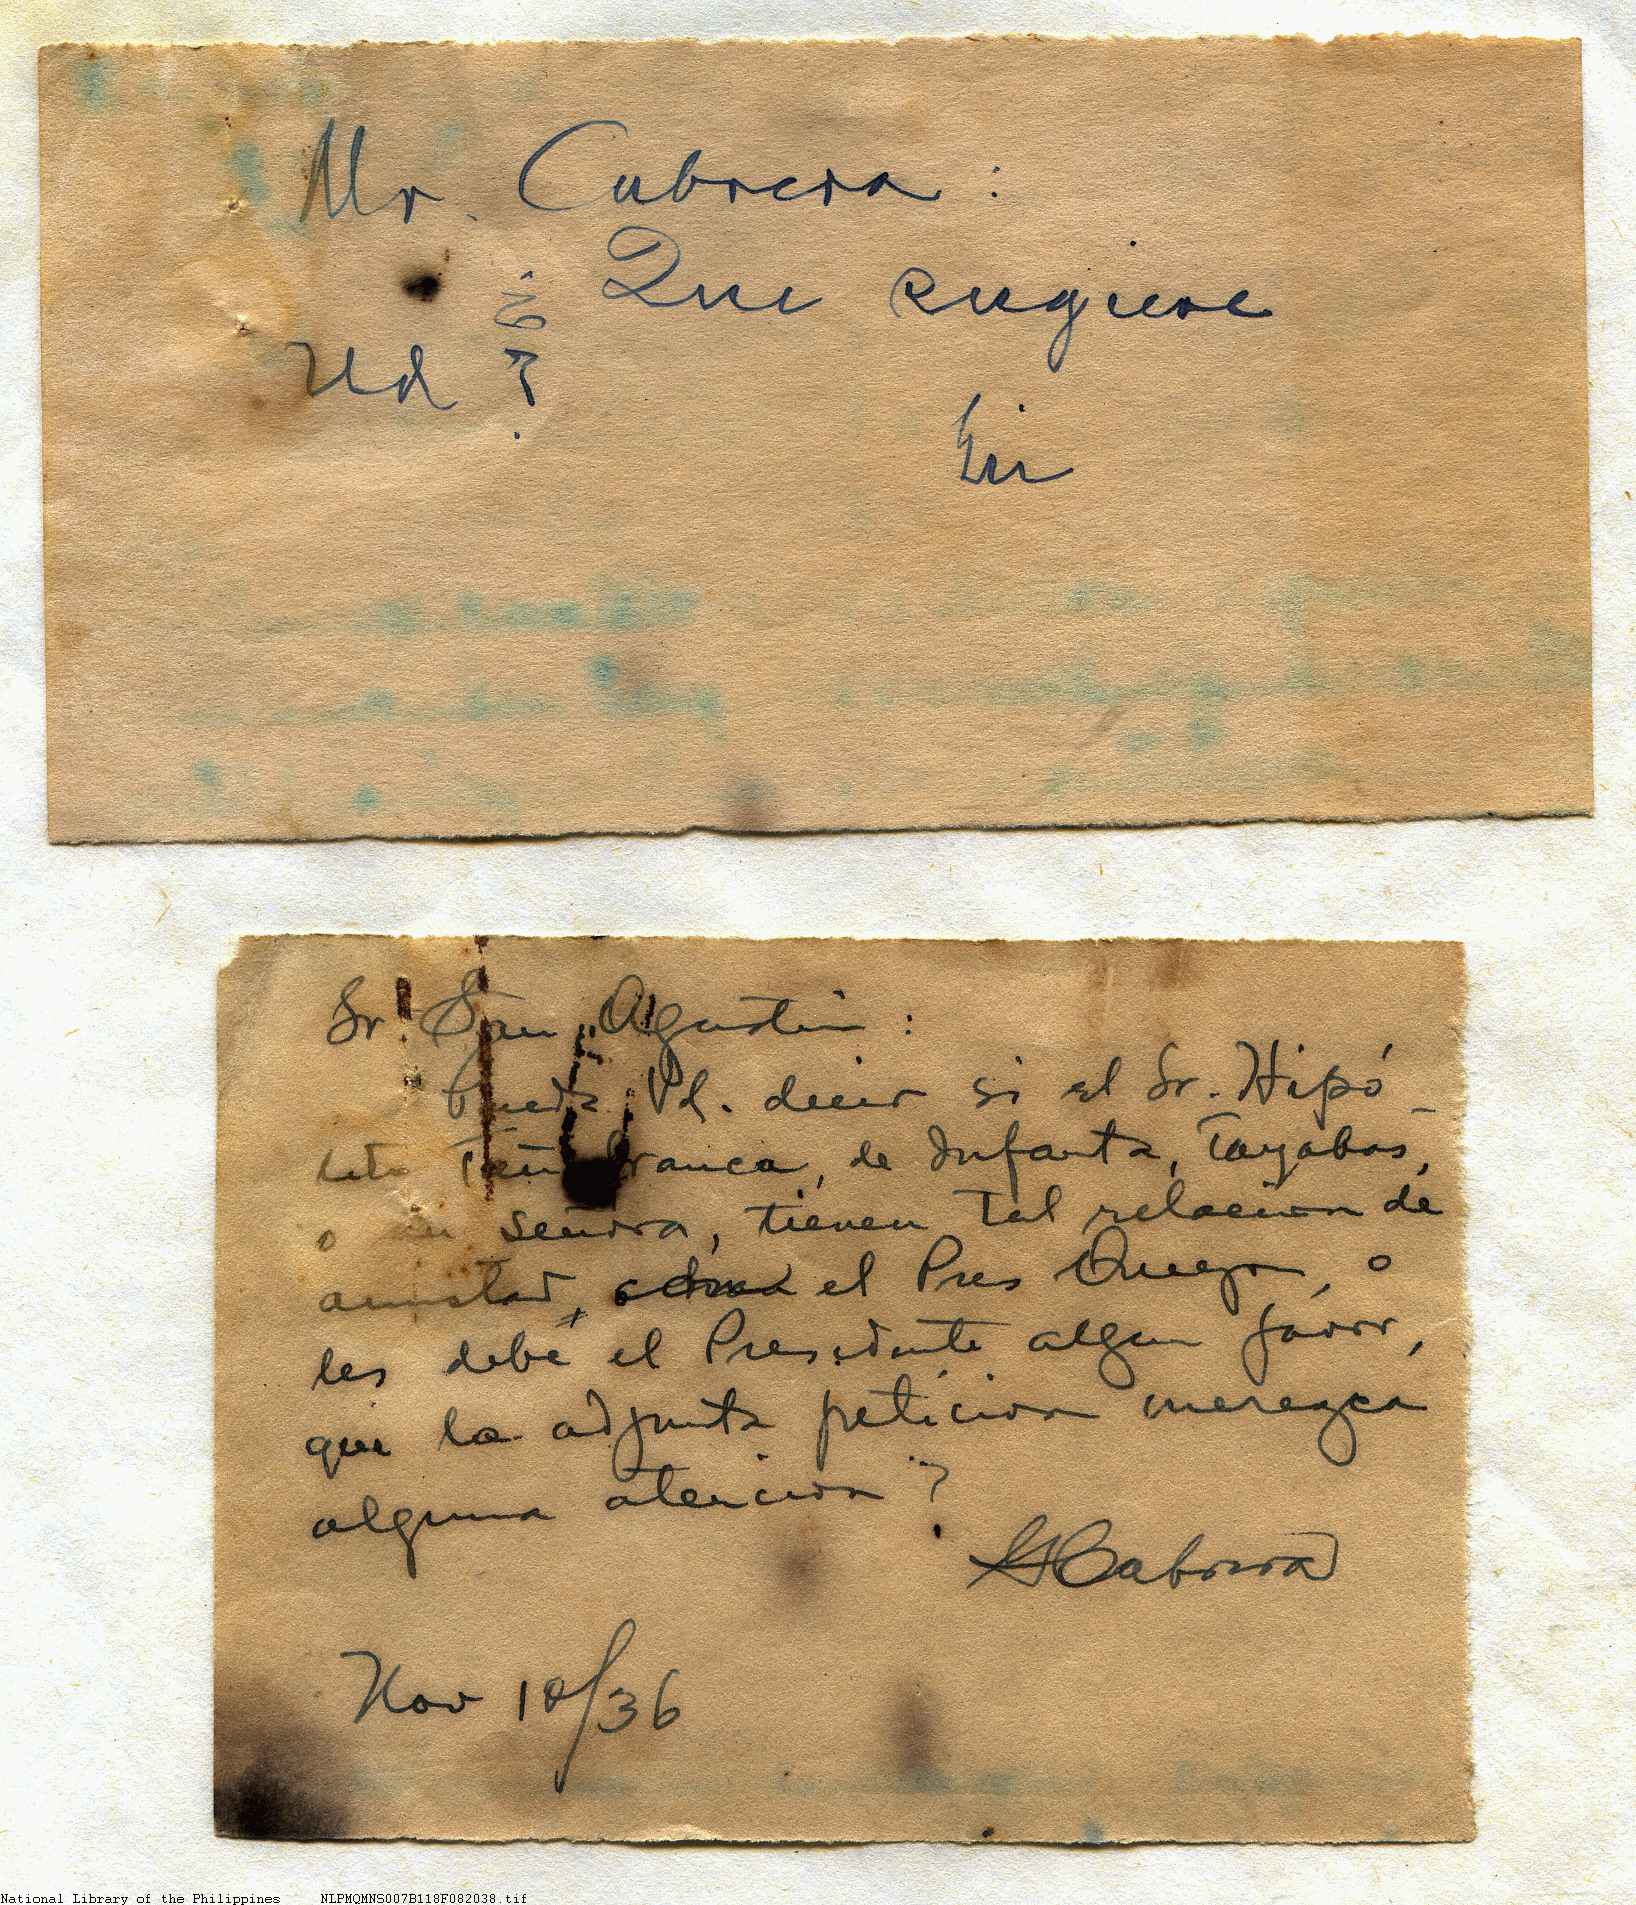 Mr. Cabrera:
Que sugiere
Ud
Sr. San Agustin:
Puede Vd. decir si el Sr. Hipó-
lito Peñafranca, de Infanta, Tayabas,
o su señora, tienen tal relacion de
amistad, con el Pres Quezon, o
les debe el Presidente algun favor,
que la adjunta peticion merezca
alguna atencion?
Cabrera
Nov 10/36
National Library of the Philippines NLPMQMNS007B118F082038.tif